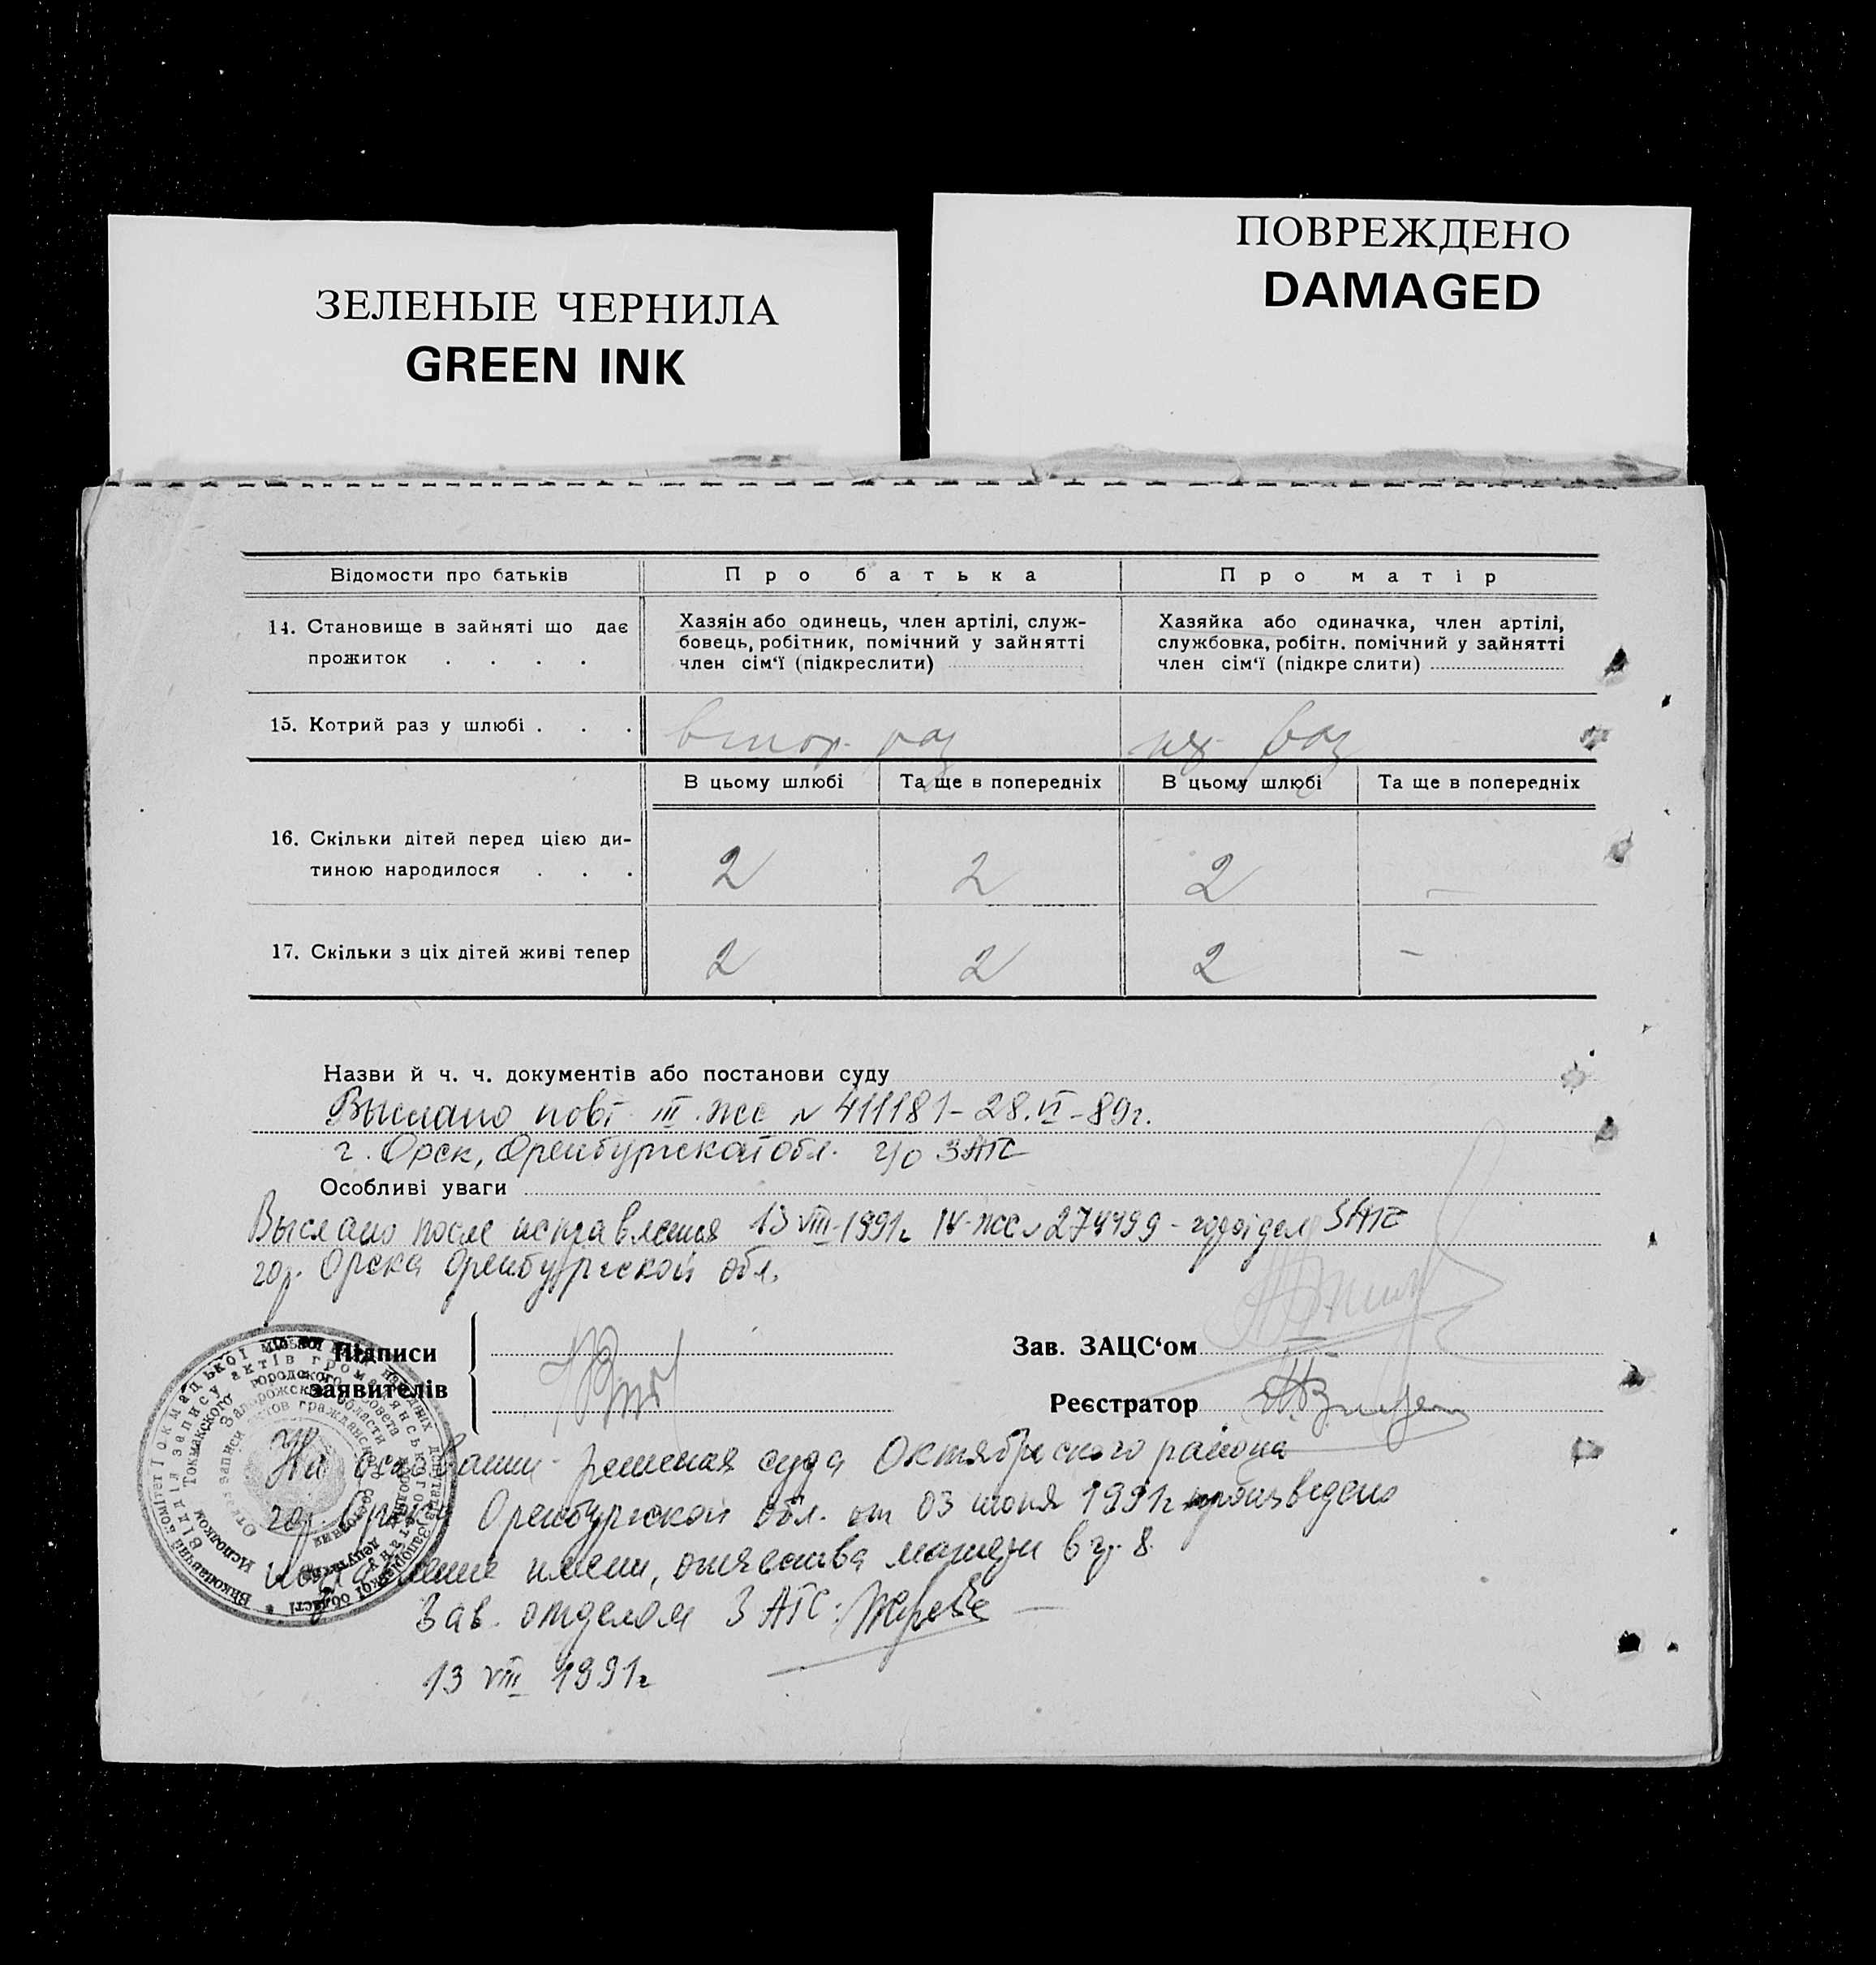 ЗЕЛЕНЫЕ ЧЕРНИЛА
GREEN INK
ПОВРЕЖДЕНО
DAMAGED
Відомости про батьків Про батька Про матір
14. Становище в зайняті що дає прожиток . . . .
Хазяін або одинець, член артілі, служ-
бовець, робітник, помічний у зайнятті
член сім‘ї (підкреслити)
Хазяйка або одиначка, член артілі,
службовка, робітн. помічний у зайнятті
член сім‘ї (підкреслити)
15. Котрий раз у шлюбі . . . втор. раз
В цьому шлюбі Та ще в попередніх В цьому шлюбі Та ще в попередніх
16. Скільки дітей перед цією ди-
тиною народилося . . . 2 2 2 —
17. Скільки з ціх дітей живі тепер 2 2 2 —
Назви й ч. ч. документів або постанови суду
Выслано повт. III-ЖС № 411181 - 28.VI-89г.
г. Орск, Оренбургской обл. г/о ЗАГС
Особливі уваги
Выслано после исправления 13 VIII-1991г IV-ЖС № 274499 - горотдел ЗАГС
гор. Орска Оренбургской обл.
Підписи
заявителів
Зав. ЗАЦС‘ом
Реєстратор
На основании решения суда Октябрьского района
гор. Орска Оренбургской обл. от 03 июня 1991г произведено
исправление имени, отчества матери в гр. 8.
Зав. отделом ЗАГС:
13 VIII 1991г